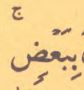 بِبَعْضٍۚ